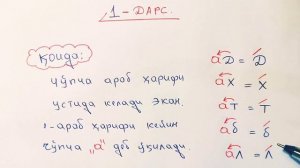 1 - ДАРС.
Қоида:
чўпча араб ҳарифи
устида келади экан.
- араб ҳарифи кейин
чўпча „а" деб ўқилади
аД = Д
аХ = Х
аТ = Т
аб = б
аЛ = Л